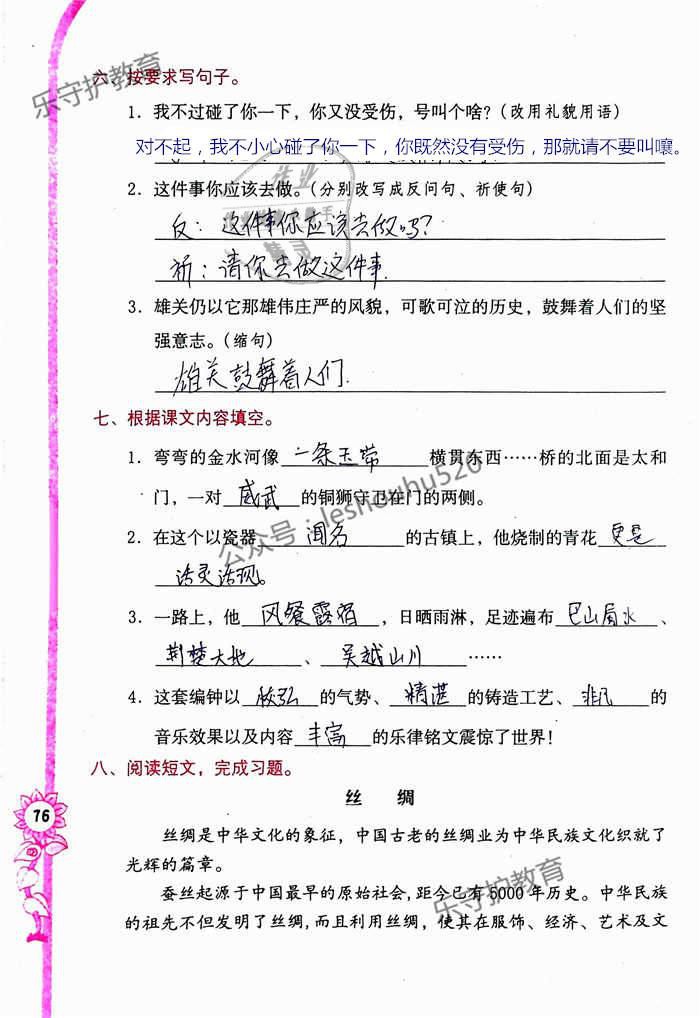 六、按要求写句子。
1. 我不过碰了你一下，你又没受伤，号叫个啥？(改用礼貌用语)
对不起，我不小心碰了你一下，你既然没有受伤，那就请不要叫嚷。
2. 这件事你应该去做。(分别改写成反问句、祈使句)
反：这件事你应该去做吗？
祈：请你去做这件事.
3. 雄关仍以它那雄伟庄严的风貌，可歌可泣的历史，鼓舞着人们的坚
强意志。(缩句)
雄关鼓舞着人们.
七、根据课文内容填空。
1. 弯弯的金水河像 一条玉带 横贯东西……桥的北面是太和
门，一对 威武 的铜狮守卫在门的两侧。
2. 在这个以瓷器 闻名 的古镇上，他烧制的青花 更是
活灵活现。
3. 一路上，他 风餐露宿 ，日晒雨淋，足迹遍布 巴山蜀水 、
荆楚大地 、 吴越山川 ……
4. 这套编钟以 恢弘 的气势、 精湛 的铸造工艺、 非凡 的
音乐效果以及内容 丰富 的乐律铭文震惊了世界！
八、阅读短文，完成习题。
丝 绸
丝绸是中华文化的象征，中国古老的丝绸业为中华民族文化织就了
光辉的篇章。
蚕丝起源于中国最早的原始社会，距今已有5000年历史。中华民族
的祖先不但发明了丝绸，而且利用丝绸，使其在服饰、经济、艺术及文
76
乐守护教育
公众号：leshouhu520
乐守护教育